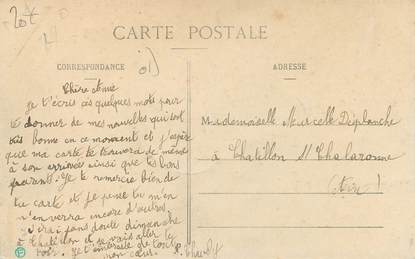 20t
CARTE POSTALE
CORRESPONDANCE
ADRESSE
Chère Amie
Je t'écris ces quelques mots pour
te donner de mes nouvelles qui sont
très bonne en ce moment et j'espère
que ma carte te trouvera de même
à son arrivée ainsi que tes bons
parents. Je te remercie bien de
ta carte et je pense tu m'en
n'enverra encore d'autres
J'irai sans doute dimanche
à Chatillon et je vais aller te
voir. Je t'embrasse de tout
mon cœur.
Mademoiselle Marcelle Déplanche
à Chatillon s/ Chalaronne
(Ain)